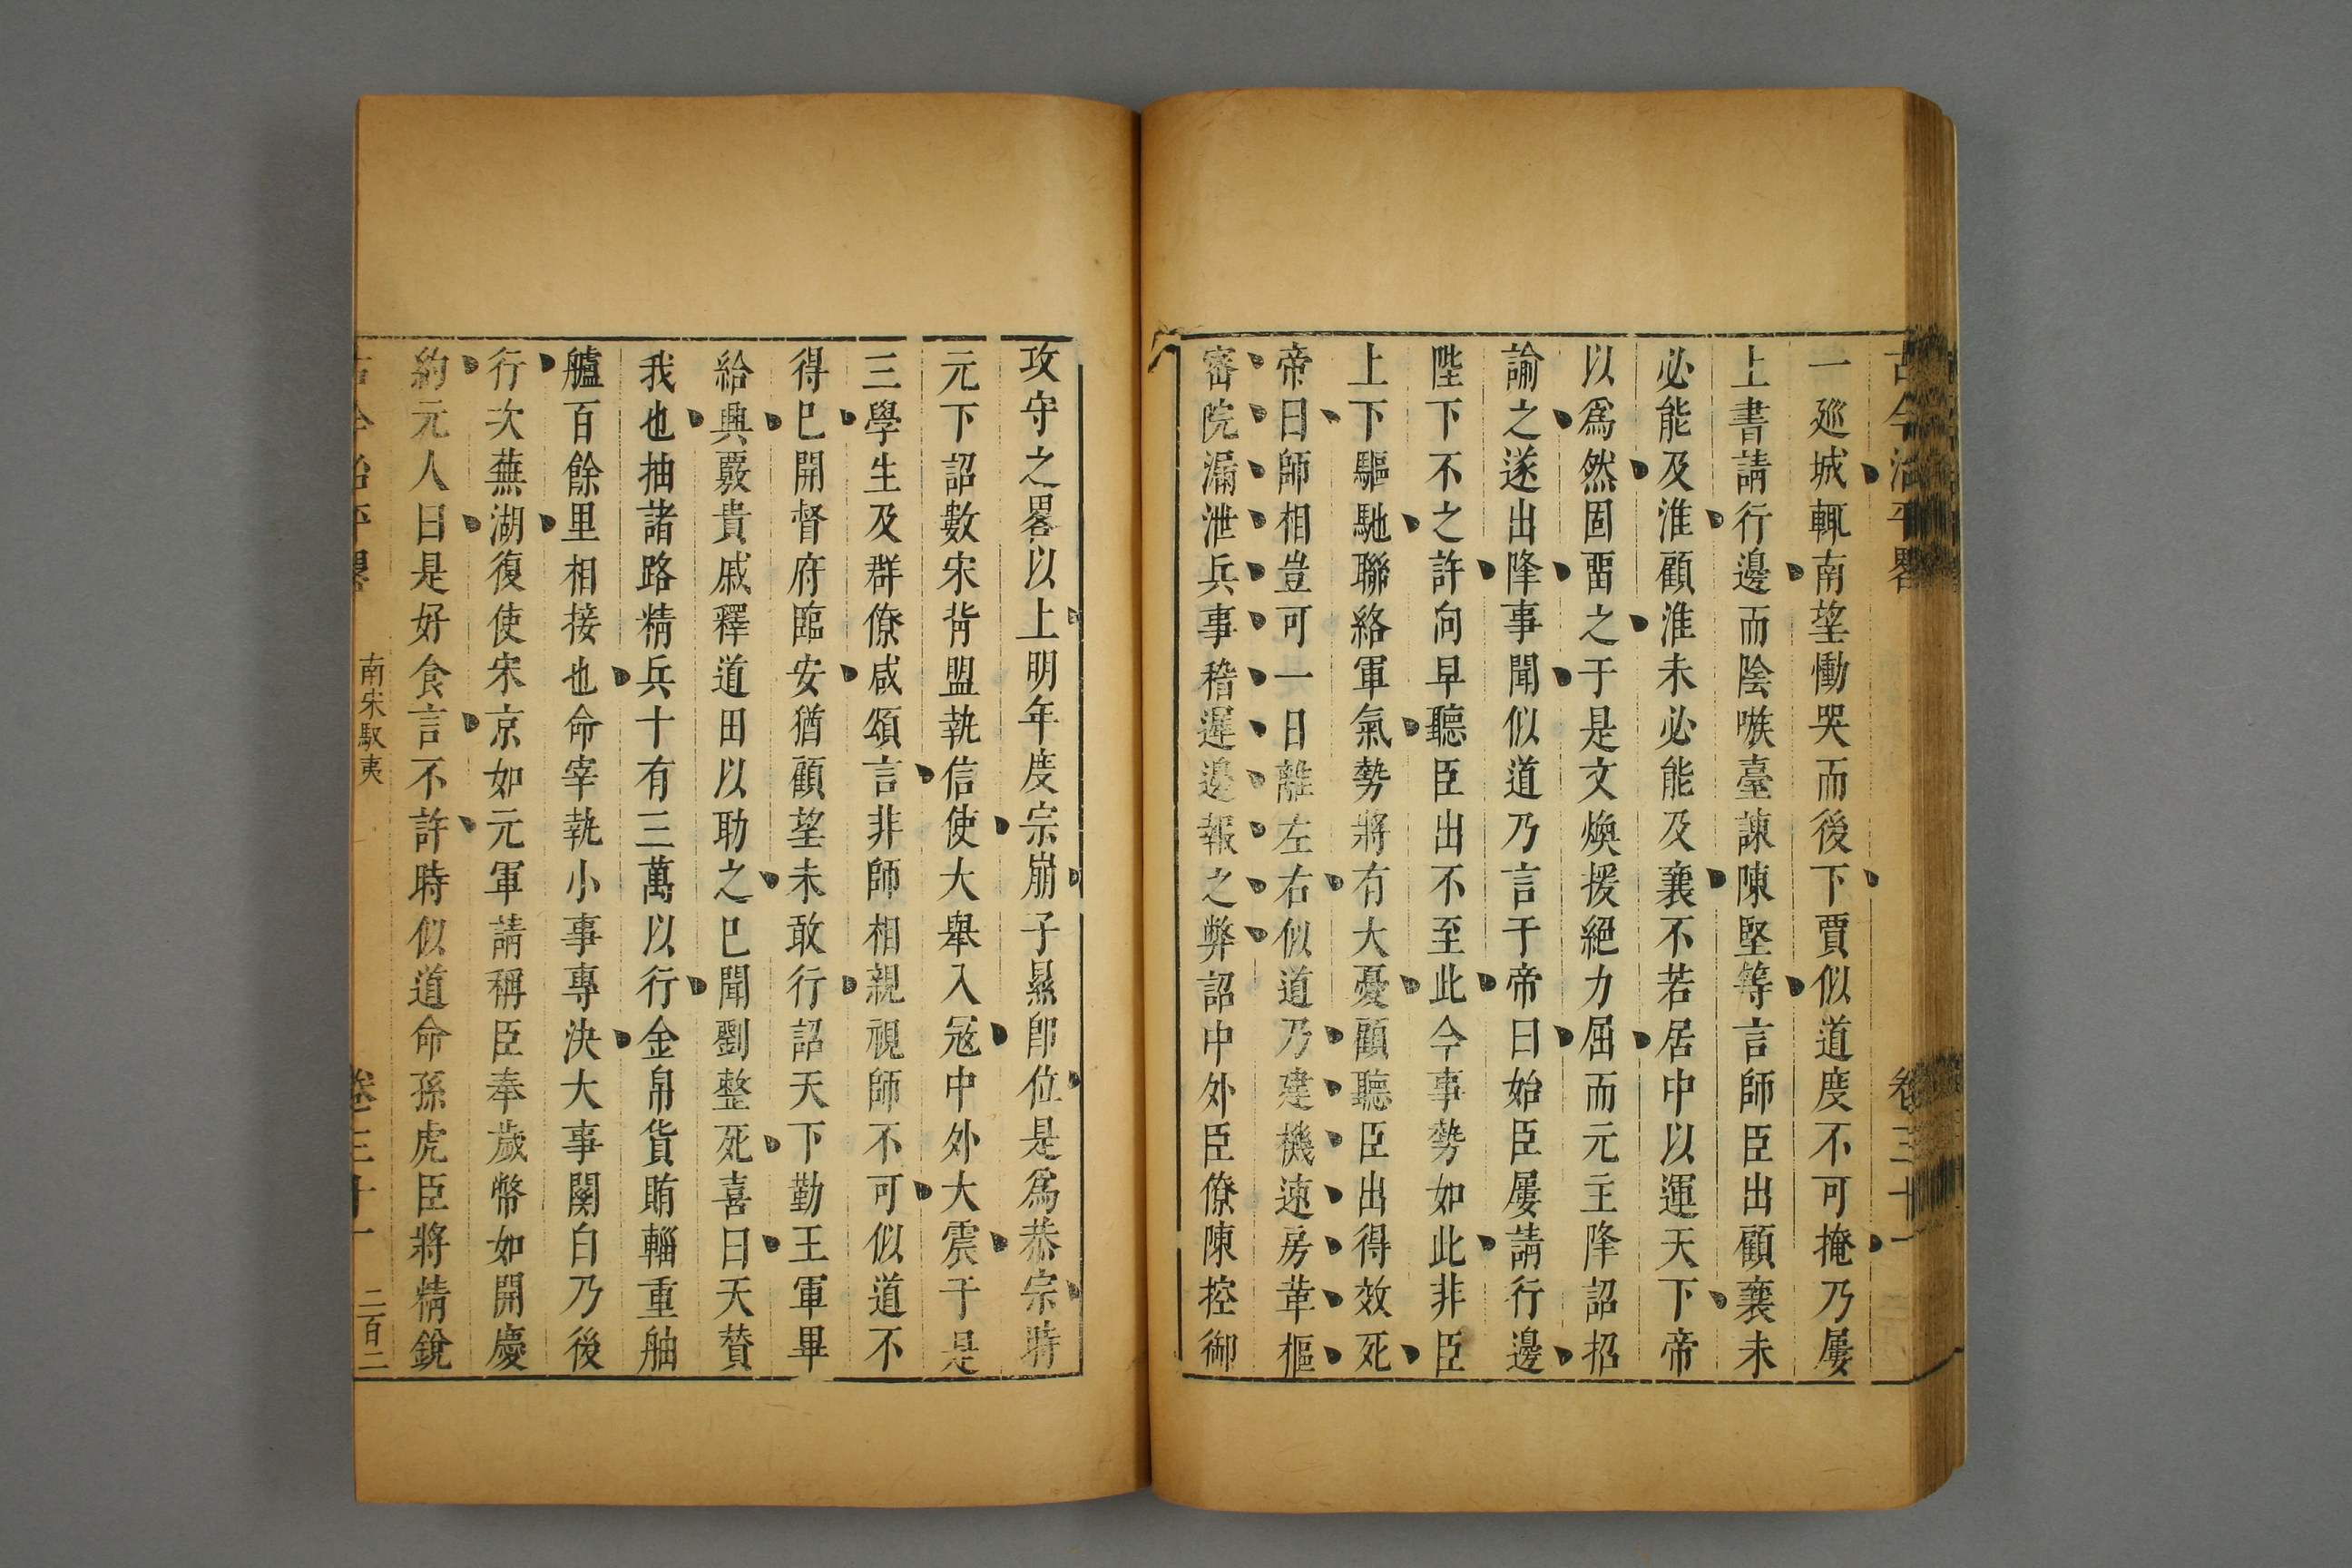 古今治平畧 卷三十一
一廵城輒南望慟哭而後下賈似道度不可掩乃屢
上書請行邊而陰嗾臺諫陳堅等言師臣出顧襄未
必能及淮顧淮未必能及襄不若居中以運天下帝
以爲然固畱之于是文煥援絕力屈而元主降詔招
諭之遂出降事聞似道乃言于帝曰始臣屢請行邊
陛下不之許向早聽臣出不至此今事勢如此非臣
上下驅馳聯絡軍氣勢將有大憂顧聽臣出得效死
帝曰師相豈可一日離左右似道乃建機速房革樞
密院漏泄兵事稽遲邊報之弊詔中外臣僚陳控御
攻守之畧以上明年度宗崩子㬎卽位是爲恭宗時
元下詔數宋背盟執信使大舉入冦中外大震于是
三學生及群僚咸頌言非師相親視師不可似道不
得已開督府臨安猶顧望未敢行詔天下勤王軍畢
給興覈貴戚釋道田以助之已聞劉整死喜曰天贊
我也抽諸路精兵十有三萬以行金帛貨賄輜重舳
艫百餘里相接也命宰執小事專決大事關白乃後
行次蕪湖復使宋京如元軍請稱臣奉歲幣如開慶
約元人曰是好食言不許時似道命孫虎臣將精銳
古今治平畧 南宋馭夷 卷三十一 二百二